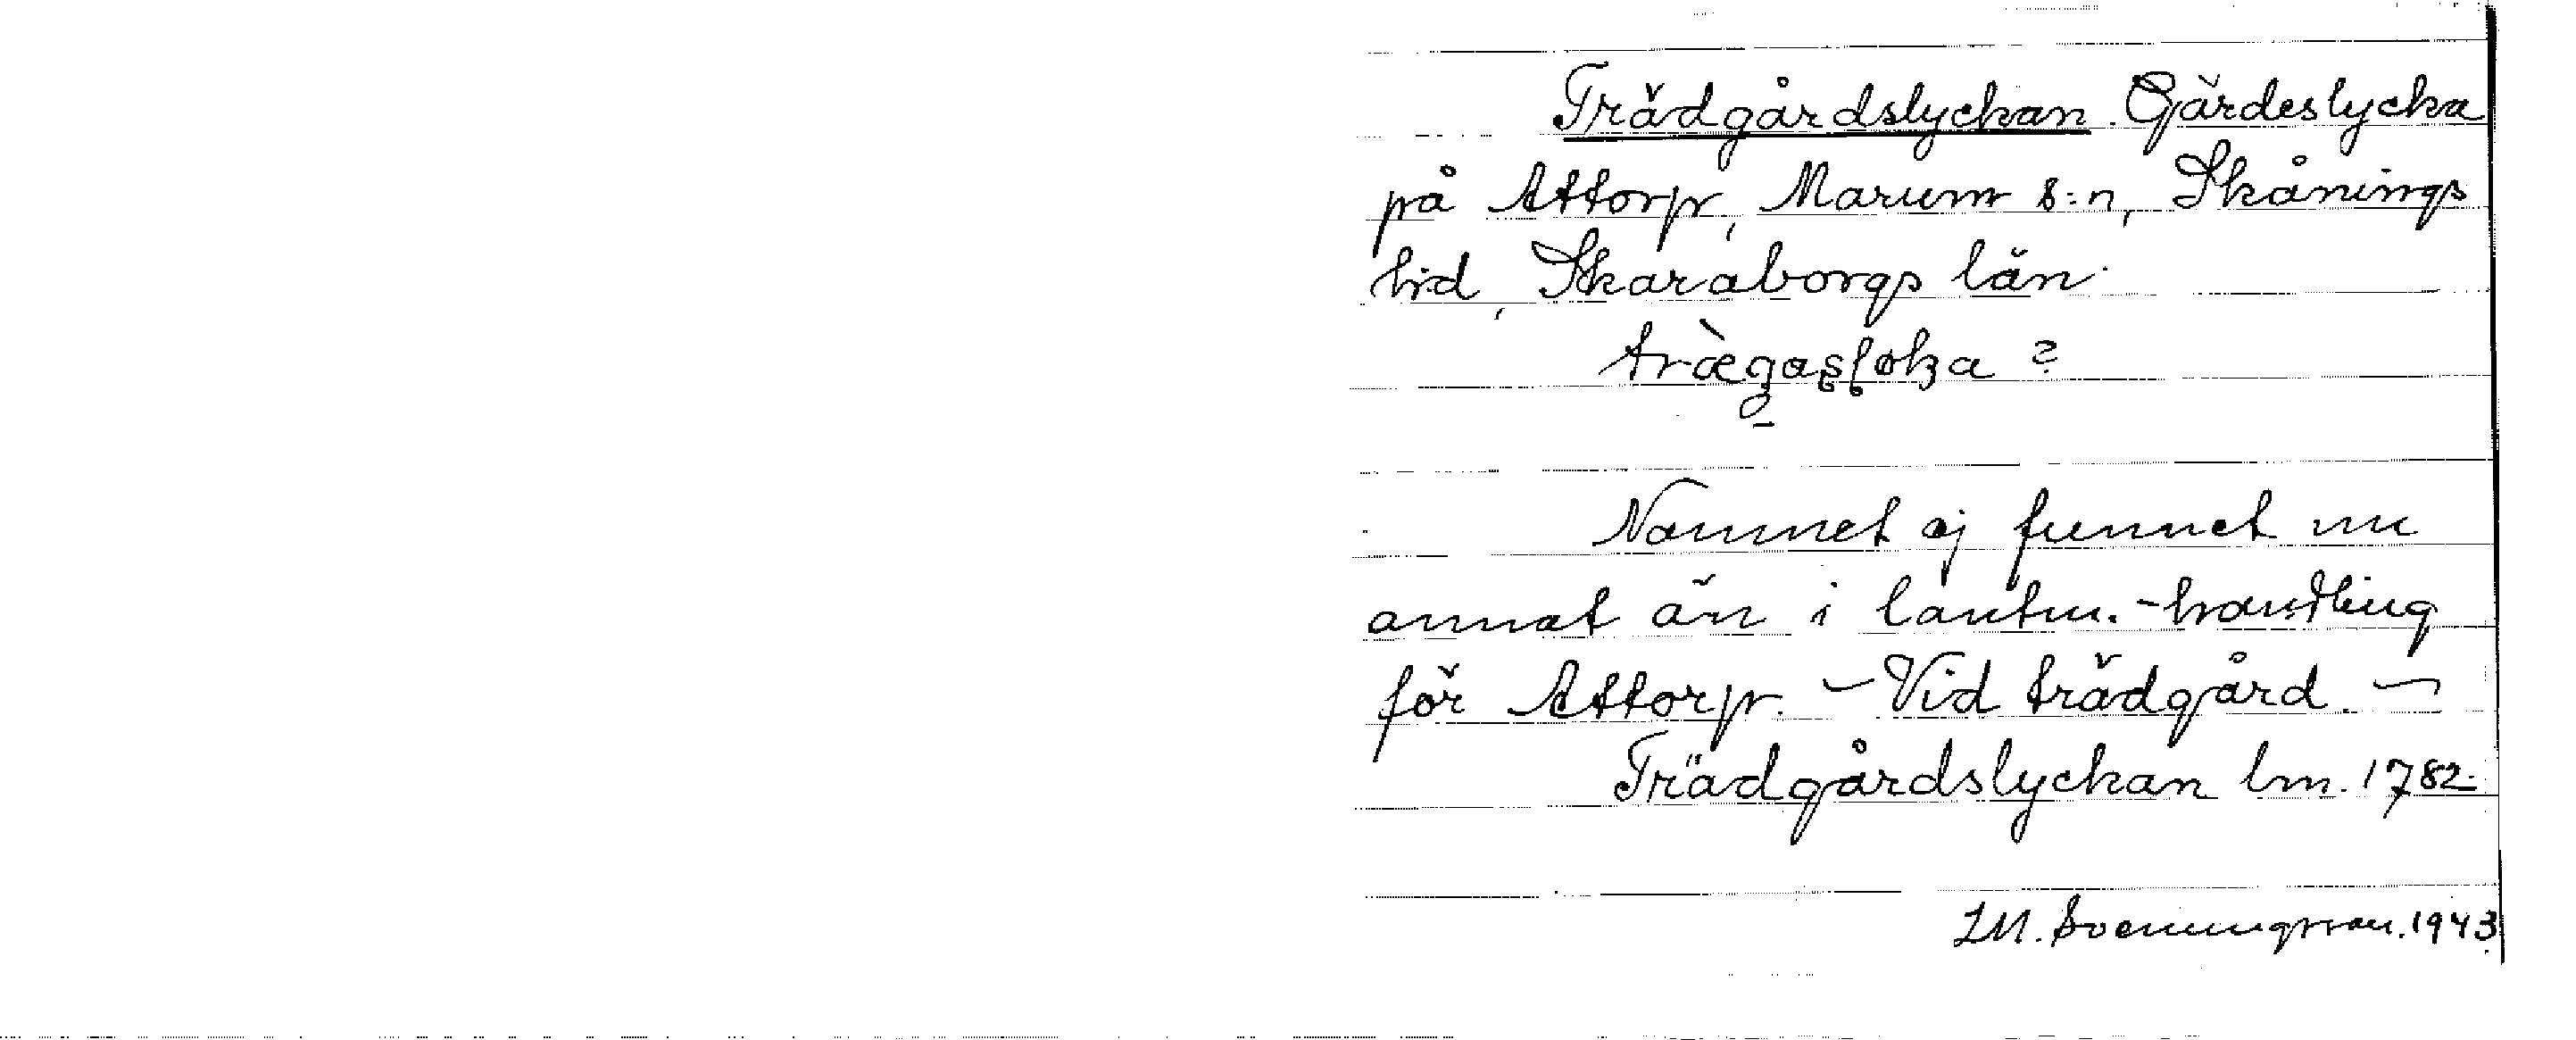 Trädgårdslyckan. Gärdeslycka
på Attorp, Marum s:n, Skånings
hd, Skaraborgs län.
trægasløka ?
Namnet ej funnet nu
annat än i lantm.-handling
för Attorp. – Vid trädgård. –
Trädgårdslyckan lm. 1782.
I.M. Svenungsson. 1943.